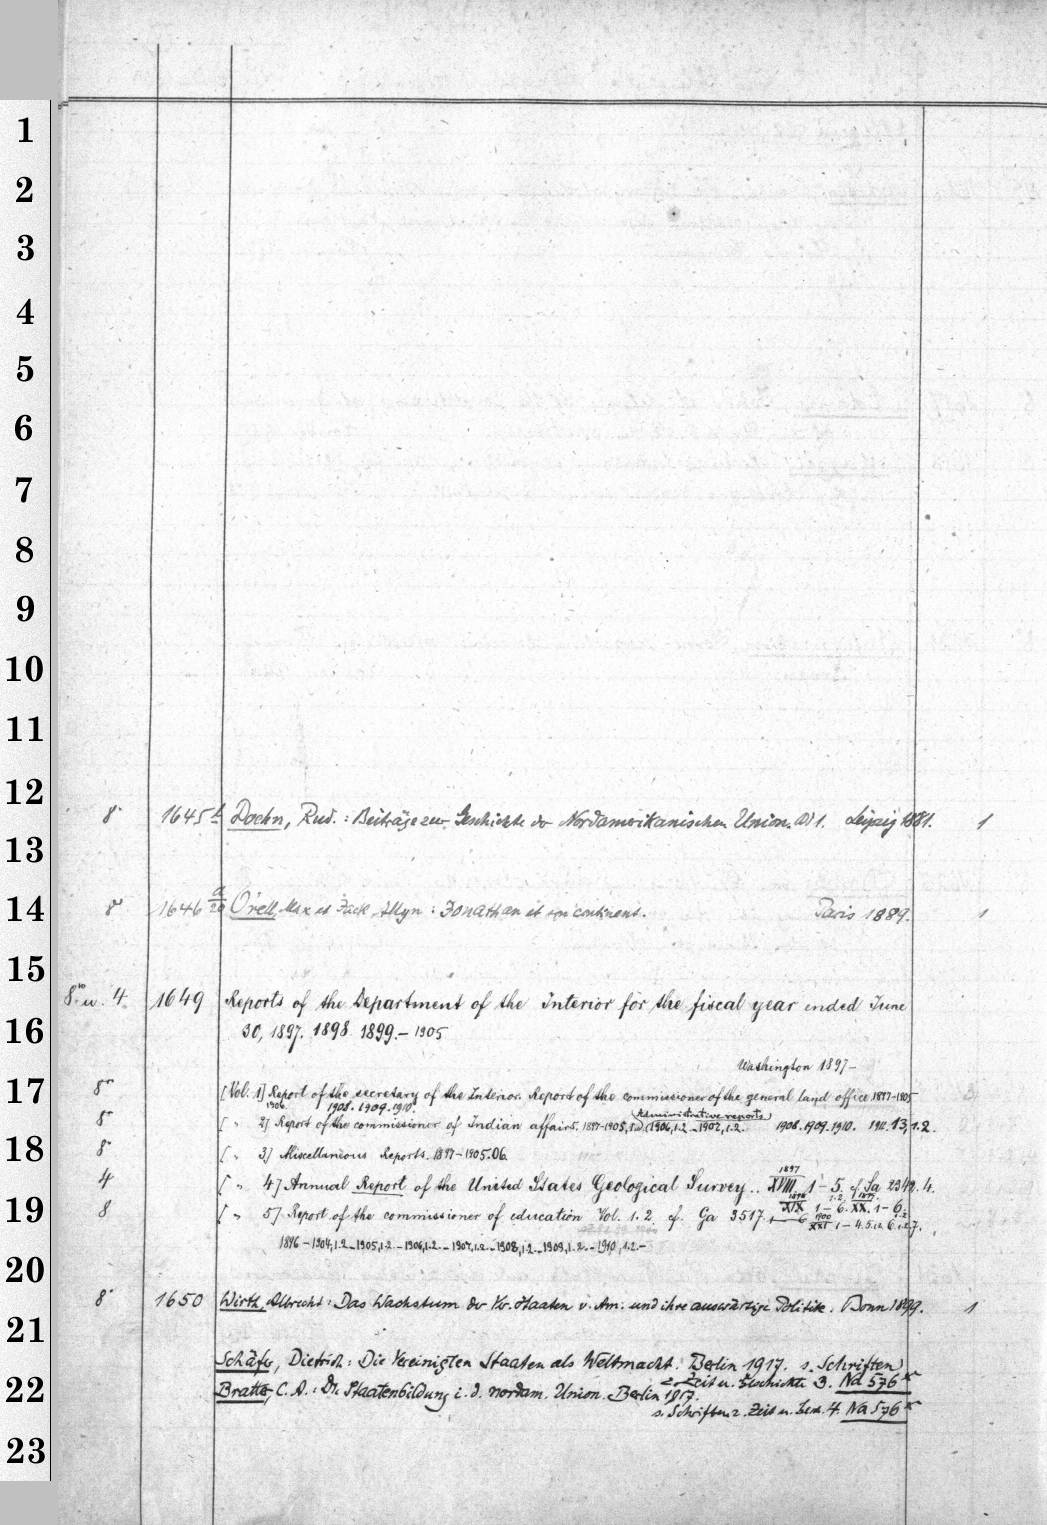 1
2
3
4
5
6
7
8
9
10
11
12
8° 1645 b Doehn, Rud.: Beiträge zur Geschichte der Nordamerikanischen Union. Bd 1. Leipzig 1881. 1
13
14 8° 1646 a/20 O'rell, Max et Jack Allyn: Jonathan et son continent. Paris 1889. 1
15
8° u. 4. 1649 Reports of the Department of the Interior for the fiscal year ended June
16 30, 1897. 1898 1899.– 1905
Washington 1897–
17 8° [Vol. 1] Report of the secretary of the Interior. Report of the commissioner of the general land office 1897–1905
1906. 1908. 1909. 1910.
8° [ " 2] Report of the commissioner of Indian affairs. 1897–1905,1.2. (Administrative reports) (1906,1.2 – 1907,1.2. 1908. 1909. 1910. 1912. 13,1.2.
18 8° [ " 3] Miscellaneous Reports. 1897–1905.06.
4 [ " 4] Annual Report of the United States Geological Survey.. 1897 XVIII, 1–5. cf Sa 2342. 4.
1898 XIX 1–6. 1899. XX. 1–6.
19 8 [ " 5] Report of the commissioner of education Vol. 1.2. cf. Ga 3517. 1900 XXI 1–4.5.
1896–1904,1.2.–1905,1.2.–1906,1.2.–1907,1.2.–1908,1.2.–1909,1.2.–1910,1.2.–
20
8° 1650 Wirth, Albrecht: Das Wachstum der Ver. Staaten v. Am. und ihre auswärtige Politik. Bonn 1899. 1
21
Schäfer, Dietrich: Die Vereinigten Staaten als Weltmacht. Berlin 1917. s. Schriften
z. Zeit u. Geschichte 3. Na 576
22 Bratter, C. A.: Die Staatenbildung i. d. nordam. Union. Berlin 1917.
s. Schriften z. Zeit u. Gesch. 4. Na 576
23